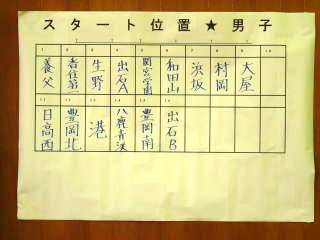 スタート位置★男子
1 2 3 4 5 6 7 8 9 10
養父 香住第一 生野 出石A 関宮学園 和田山 浜坂 村岡 大屋
11 12 13 14 15 16
日高西 豊岡北 港 八鹿青渓 豊岡南 出石B